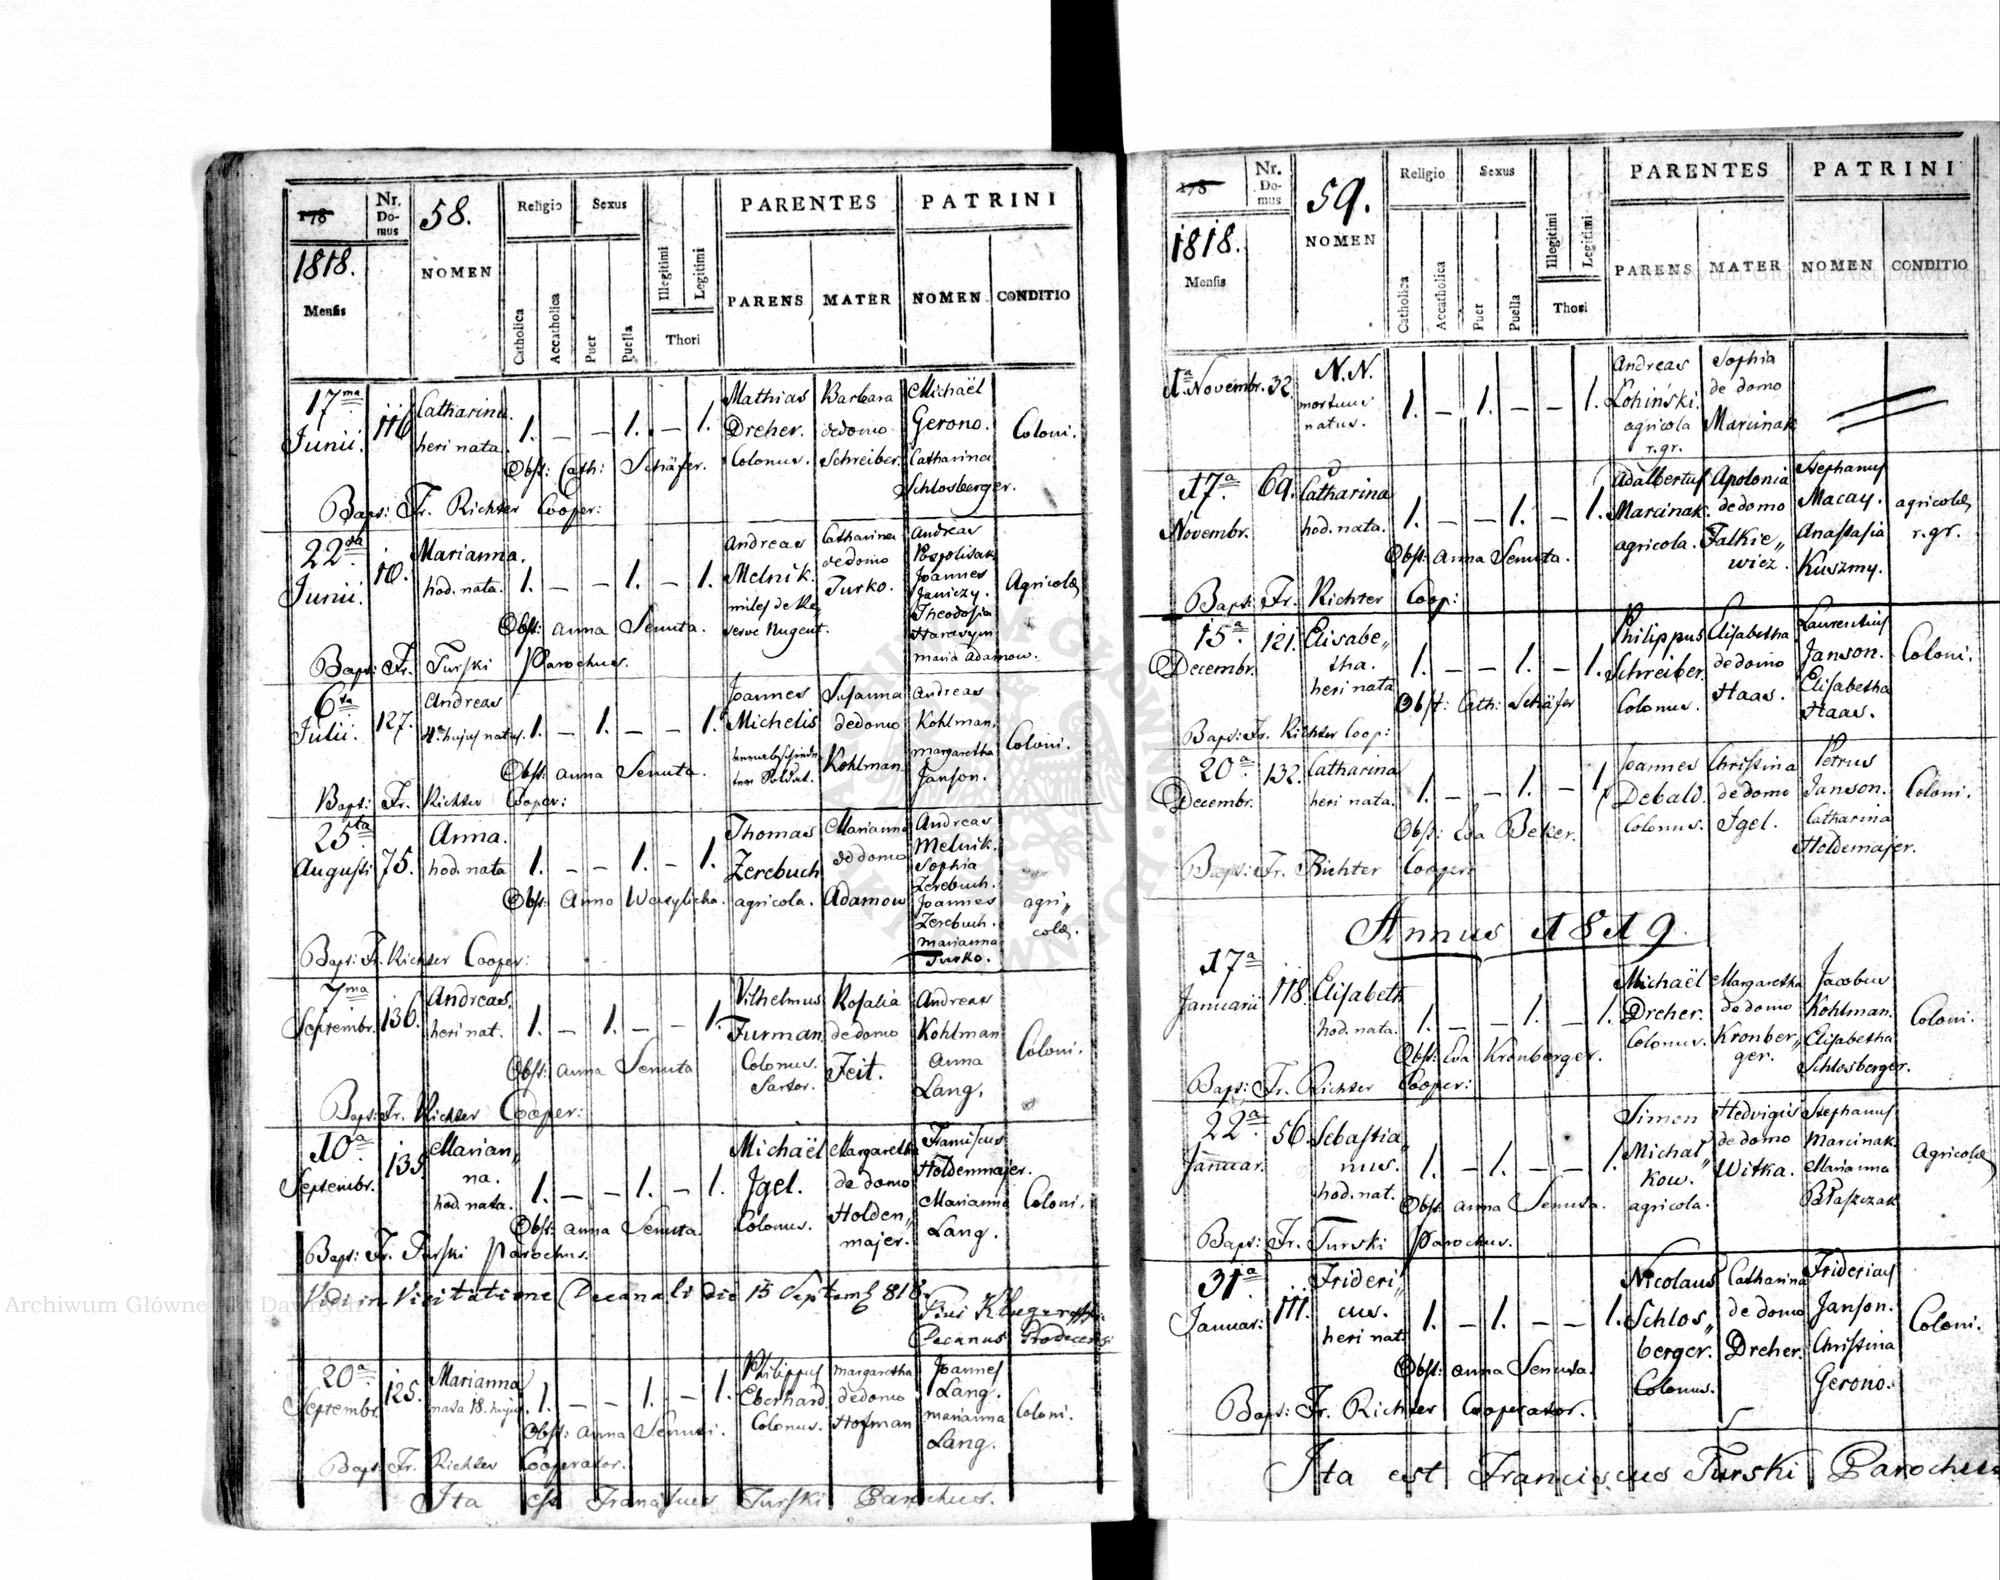 178
Nr. Domus
58.
Religio
Sexus
PARENTES
PATRINI
1818.
Mensis
NOMEN
Catholica
Accatholica
Puer
Puella
Illegitimi
Legitimi
Thori
PARENS
MATER
NOMEN
CONDITIO
17ma Junii.
116
Catharina heri nata.
1. — — 1. — 1.
Mathias Dreher. Colonus.
Barbara de domo Schreiber.
Michaël Gerono. Catharina Schlosberger.
Coloni.
Obst: Cath: Schäfer.
Bapt: Fr. Richter Cooper:
22da Junii.
10.
Marianna. hod. nata.
1. — — 1. — 1.
Andreas Melnik. miles de Reserve Nugent.
Catharina de domo Turko.
Andreas Pospolitak Joannes Janiczy. Theodosia Harasym Maria Adamow.
Agricolæ
Obst: Anna Senuta.
Bapt: Fr. Turski Parochus.
6ta Julii.
127.
Andreas 4ta hujus natus.
1. — 1. — — 1.
Joannes Michelis
Susanna de domo Kohlman.
Andreas Kohlman. Margaretha Janson.
Coloni.
Obst: Anna Senuta.
Bapt: Fr. Richter Cooper:
25ta Augusti
75.
Anna. hod. nata
1. — — 1. — 1.
Thomas Zerebuch agricola.
Marianna de domo Adamow
Andreas Melnik. Sophia Zerebuch. Joannes Zerebuch. Marianna Turko.
agricolæ.
Obst: Anna Wasylicha.
Bapt: Fr. Richter Cooper:
7ma Septembr.
136.
Andreas, heri nat.
1. — 1. — — 1.
Vilhelmus Furman Colonus. Sartor.
Rosalia de domo Feit.
Andreas Kohlman Anna Lang.
Coloni.
Obst: Anna Senuta
Bapt: Fr. Richter Cooper:
10a Septembr.
135.
Marianna. hod. nata.
1. — — 1. — 1.
Michaël Igel. Colonus.
Margaretha de domo Holdenmajer.
Franciscus Holdenmajer. Marianna Lang.
Coloni.
Obst: Anna Senuta.
Bapt: Fr. Turski Parochus.
Vidi in Visitatione Decanali die 15 Septemb 818.
Decanus
20a Septembr.
125.
Marianna nata 18. hujus.
1. — — 1. — 1.
Philippus Eberhard Colonus.
Margaretha de domo Hofman
Joannes Lang. Marianna Lang.
Coloni.
Obst: Anna Senuta.
Bapt. Fr. Richter Cooperator.
Ita est Franciscus Turski Parochus.
178
Nr. Domus
59.
Religio
Sexus
PARENTES
PATRINI
1818.
Mensis
NOMEN
Catholica
Accatholica
Puer
Puella
Illegitimi
Legitimi
Thori
PARENS
MATER
NOMEN
CONDITIO
1a Novembr.
32.
N.N. mortuus natus.
1. — 1. — — 1.
Andreas Lohiński. agricola r.gr.
Sophia de domo Marcinak
17a Novembr.
69.
Catharina hod. nata.
1. — — 1. — 1.
Adalbertus Marcinak. agricola.
Apolonia de domo Falkiewicz.
Stephanus Macay. Anastasia Kuszmy.
agricolæ r.gr.
Obst: Anna Senuta.
Bapt: Fr. Richter Coop:
15a Decembr.
121.
Elisabetha. heri nata
1. — — 1. — 1.
Philippus Schreiber. Colonus.
Elisabetha de domo Haas.
Laurentius Janson. Elisabetha Haas.
Coloni.
Obst: Cath: Schäfer
Bapt: Fr. Richter Coop:
20a Decembr.
132.
Catharina heri nata.
1. — — 1. — 1.
Joannes Debald. Colonus.
Christina de domo Igel.
Petrus Janson. Catharina Holdemajer.
Coloni.
Obst: Eva Beker.
Bapt: Fr. Richter Cooper:
Annus 1819.
17a Januarii
118.
Elisabeth hod. nata.
1. — — 1. — 1.
Michaël Dreher. Colonus.
Margaretha de domo Kronberger.
Jacobus Kohlman. Elisabetha Schlosberger.
Coloni.
Obst: Eva Kronberger.
Bapt: Fr. Richter Cooper:
22a Januar.
56.
Sebastianus. hod. nat.
1. — 1. — — 1.
Simon Michalkow. agricola.
Hedvigis de domo Witka.
Stephanus Marcinak. Marianna Błaszczak
Agricolæ
Obst: Anna Senuta.
Bapt: Fr. Turski Parochus.
31a Januar:
111.
Fridericus. heri nat.
1. — 1. — — 1.
Nicolaus Schlosberger. Colonus.
Catharina de domo Dreher.
Fridericus Janson. Christina Gerono.
Coloni.
Obst: Anna Senuta.
Bapt: Fr. Richter Cooperator.
Ita est Franciscus Turski Parochus
Archiwum Główne Akt Dawnych